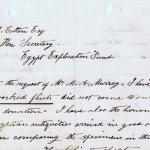 Cotton Esq
Hon. Secretary
Egypt Exploration Fund
the request of Mr. M. A. Murray, I have
worked flints did not come
donation. I have also the honour
antiquities arrived in good
comparing the specimens in the